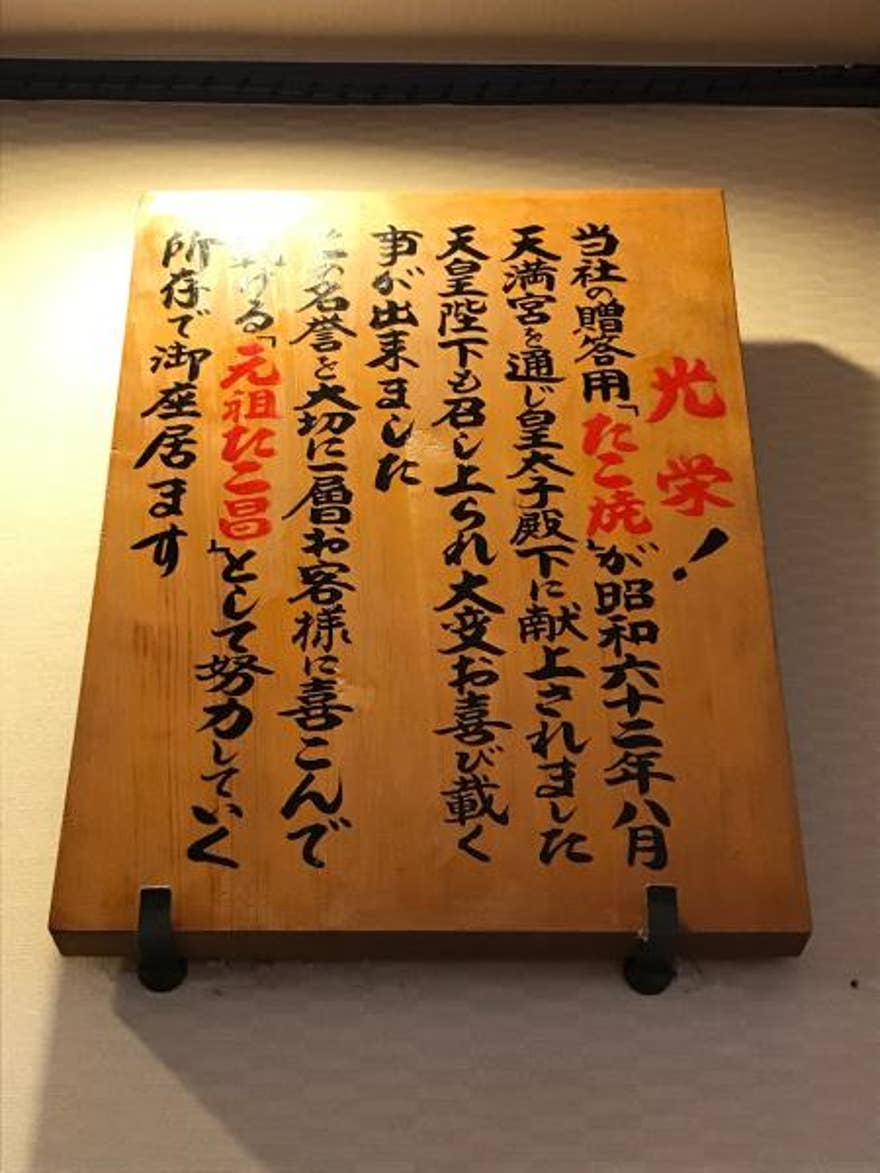 光栄!
当社の贈答用「たこ焼」が昭和六十二年八月
天満宮を通じ皇太子殿下に献上されました
天皇陛下も召し上られ大変お喜び載く
事が出来ました
名誉を大切に一層お客様に喜こんで
げる「元祖たこ昌」として努力していく
所存で御座居ます